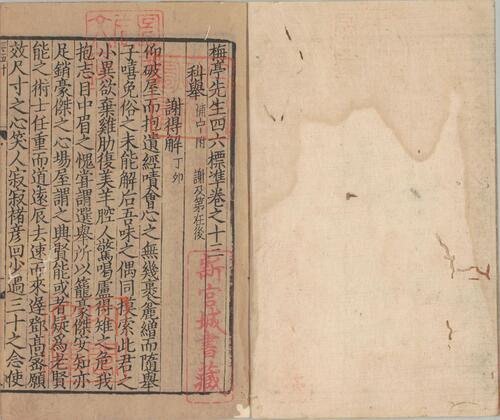 梅亭先生四六標準卷之十三
科舉 補中附 謝及第在後
謝得解 丁卯
仰破屋而抱遺經嘖會心之無幾裹麤繒而隨舉
子嘻免俗之未能解后五味之偶同摸索此君之
小異欲棄雞肋復羙羊腔人驚喝盧得雉之危我
抱志目中眉之愧嘗謂選舉所以籠豪傑安知亦
足銷豪傑之心場屋謂之興賢能或者疑為老賢
能之術士任重而道遠辰去速而來遲鄧髙密願
效尺寸之心笑人寂寂褚彥回少過三十之念使
新宮城書藏